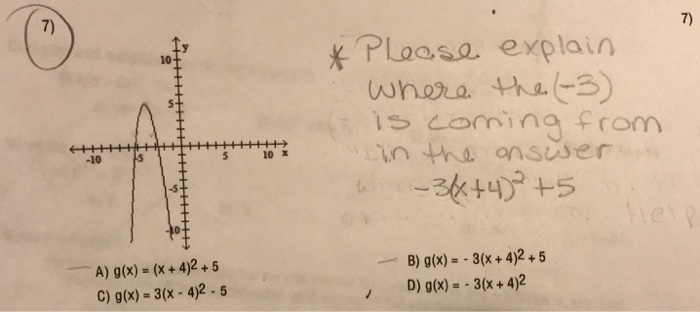 7)
7)
* Please explain
where the (-3)
is coming from
in the answer
-3(x+4)² +5
Help
y
10
5
-10
-5
5
10 x
-5
-10
A) g(x) = (x + 4)2 + 5
B) g(x) = - 3(x + 4)2 + 5
C) g(x) = 3(x - 4)2 - 5
D) g(x) = - 3(x + 4)2